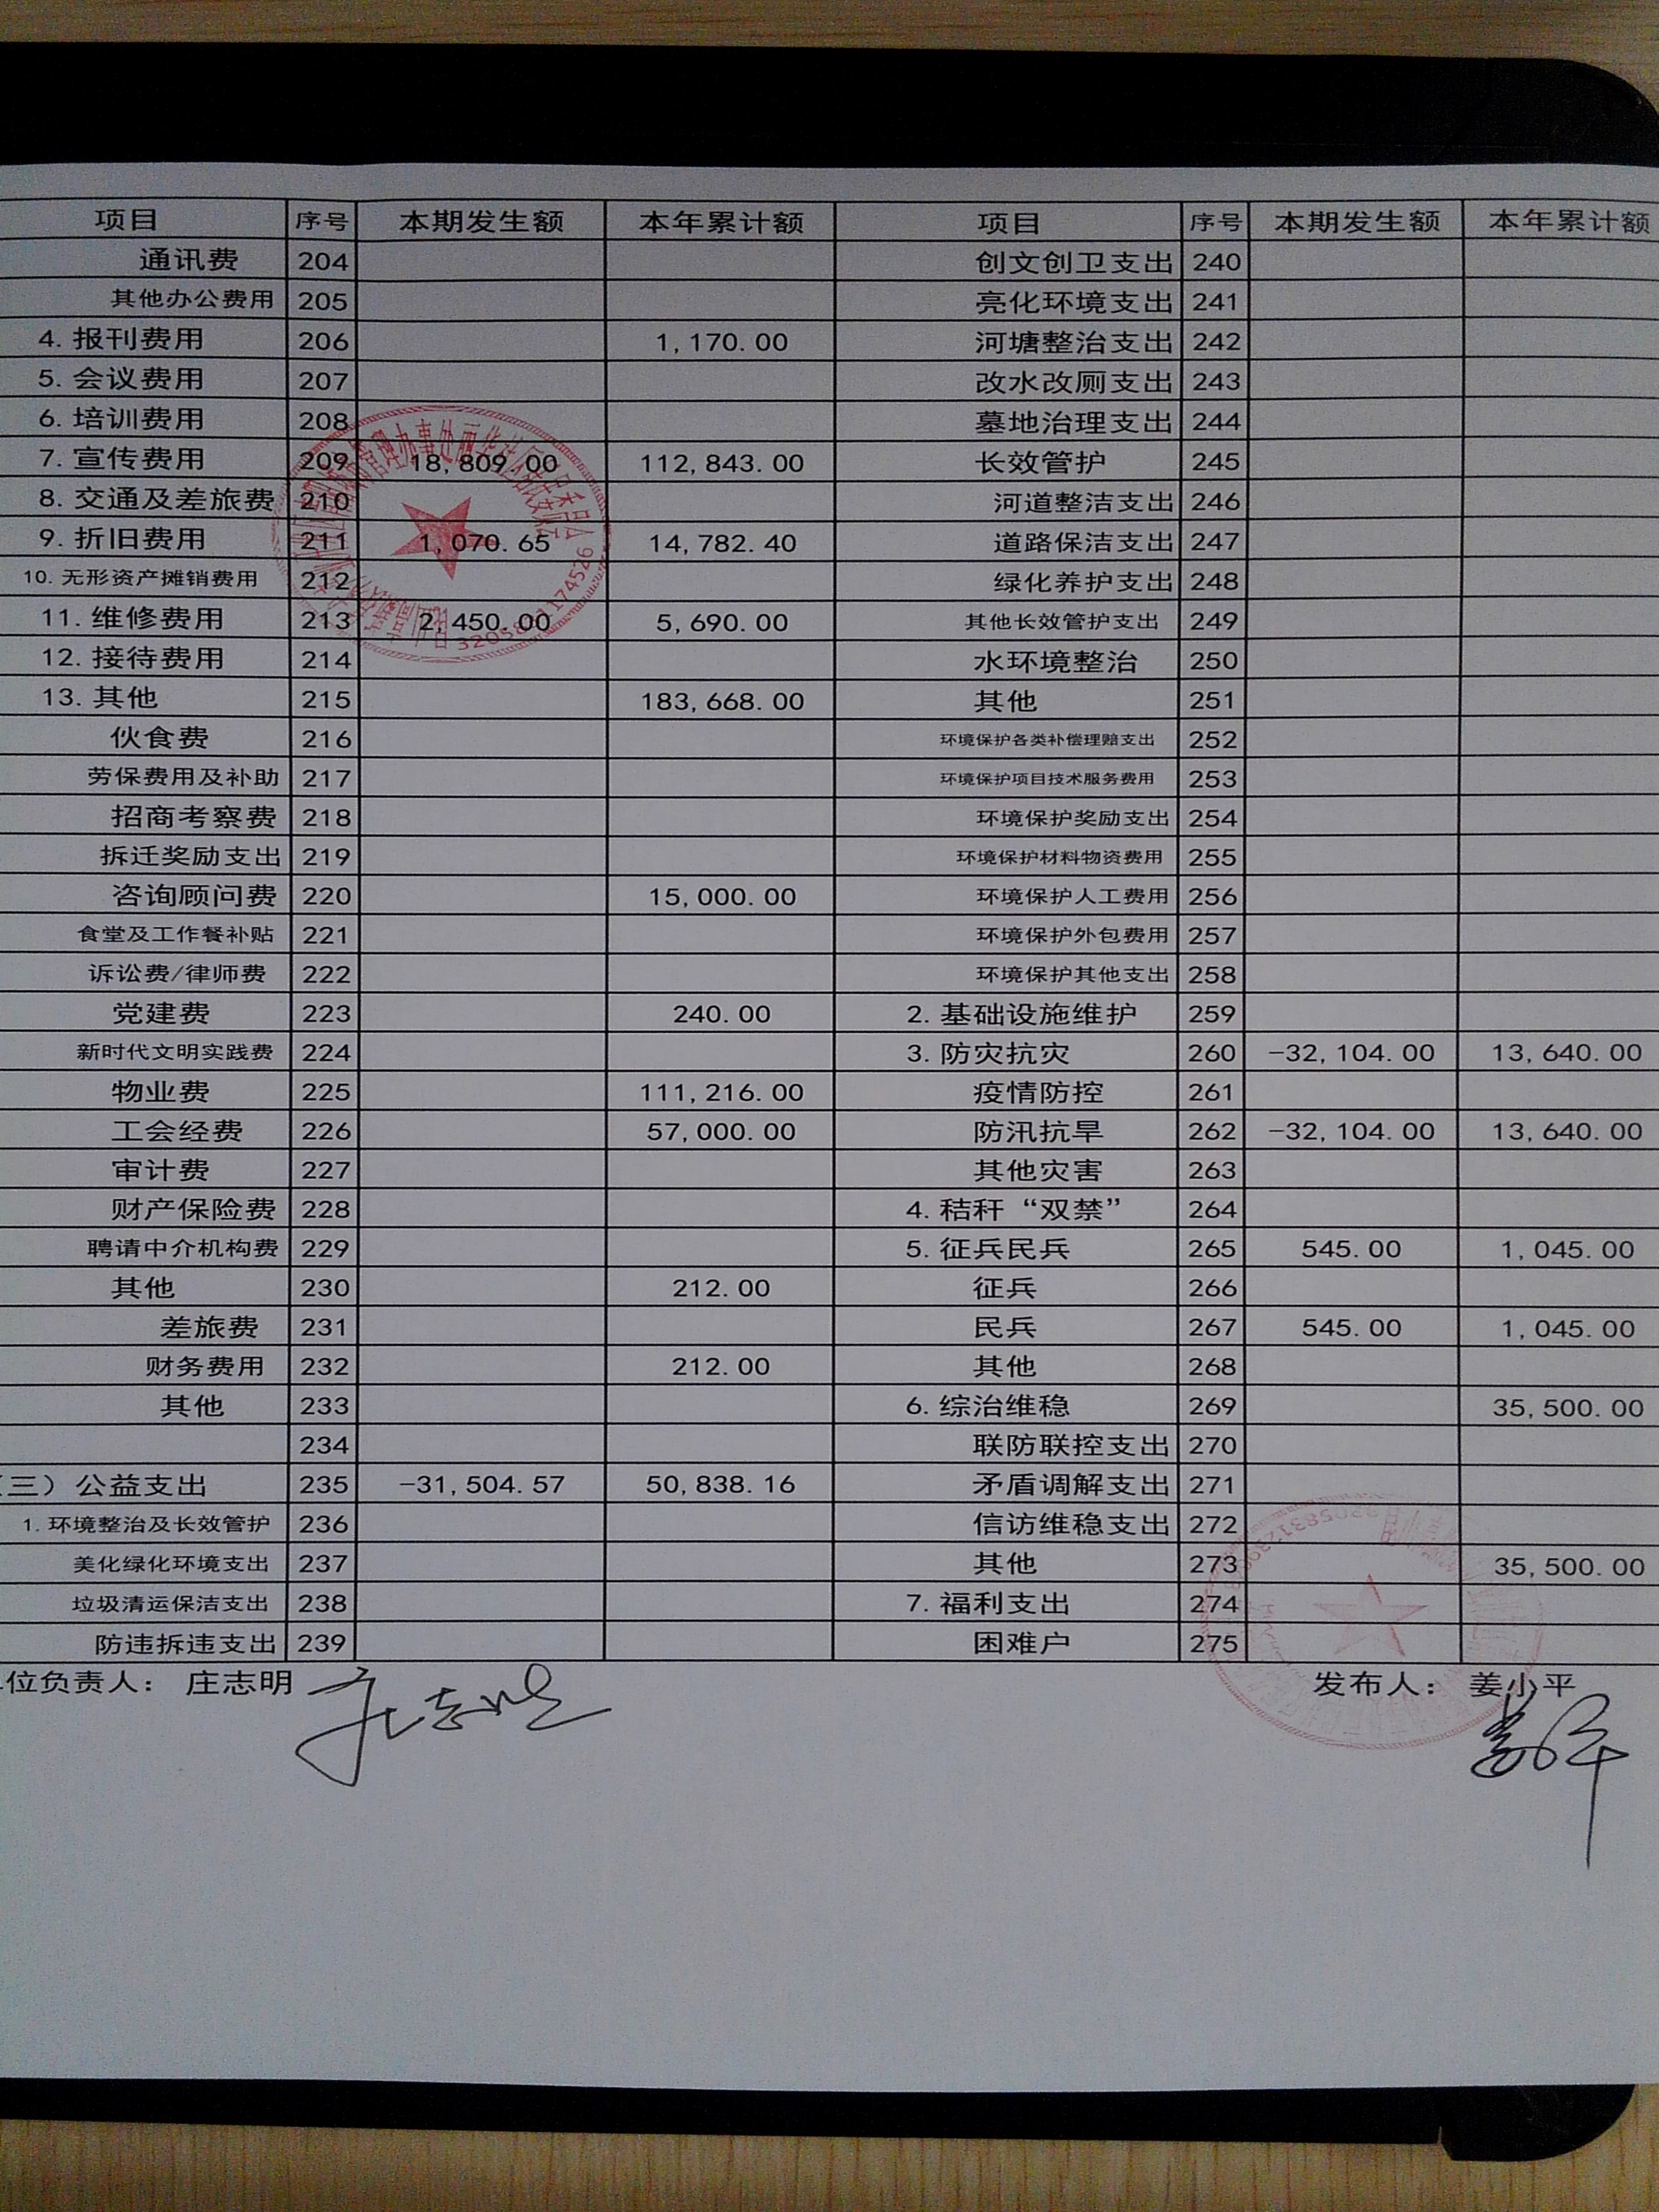 项目 序号 本期发生额 本年累计额 项目 序号 本期发生额 本年累计额
通讯费 204 创文创卫支出 240
其他办公费用 205 亮化环境支出 241
4. 报刊费用 206 1,170.00 河塘整治支出 242
5. 会议费用 207 改水改厕支出 243
6. 培训费用 208 墓地治理支出 244
7. 宣传费用 209 18,809.00 112,843.00 长效管护 245
8. 交通及差旅费 210 河道整洁支出 246
9. 折旧费用 211 1,070.65 14,782.40 道路保洁支出 247
10. 无形资产摊销费用 212 绿化养护支出 248
11. 维修费用 213 2,450.00 5,690.00 其他长效管护支出 249
12. 接待费用 214 水环境整治 250
13. 其他 215 183,668.00 其他 251
伙食费 216 环境保护各类补偿理赔支出 252
劳保费用及补助 217 环境保护项目技术服务费用 253
招商考察费 218 环境保护奖励支出 254
拆迁奖励支出 219 环境保护材料物资费用 255
咨询顾问费 220 15,000.00 环境保护人工费用 256
食堂及工作餐补贴 221 环境保护外包费用 257
诉讼费/律师费 222 环境保护其他支出 258
党建费 223 240.00 2. 基础设施维护 259
新时代文明实践费 224 3. 防灾抗灾 260 -32,104.00 13,640.00
物业费 225 111,216.00 疫情防控 261
工会经费 226 57,000.00 防汛抗旱 262 -32,104.00 13,640.00
审计费 227 其他灾害 263
财产保险费 228 4. 秸秆“双禁” 264
聘请中介机构费 229 5. 征兵民兵 265 545.00 1,045.00
其他 230 212.00 征兵 266
差旅费 231 民兵 267 545.00 1,045.00
财务费用 232 212.00 其他 268
其他 233 6. 综治维稳 269 35,500.00
234 联防联控支出 270
三）公益支出 235 -31,504.57 50,838.16 矛盾调解支出 271
1. 环境整治及长效管护 236 信访维稳支出 272
美化绿化环境支出 237 其他 273 35,500.00
垃圾清运保洁支出 238 7. 福利支出 274
防违拆违支出 239 困难户 275
位负责人： 庄志明 庄志明 发布人： 姜小平 姜小平